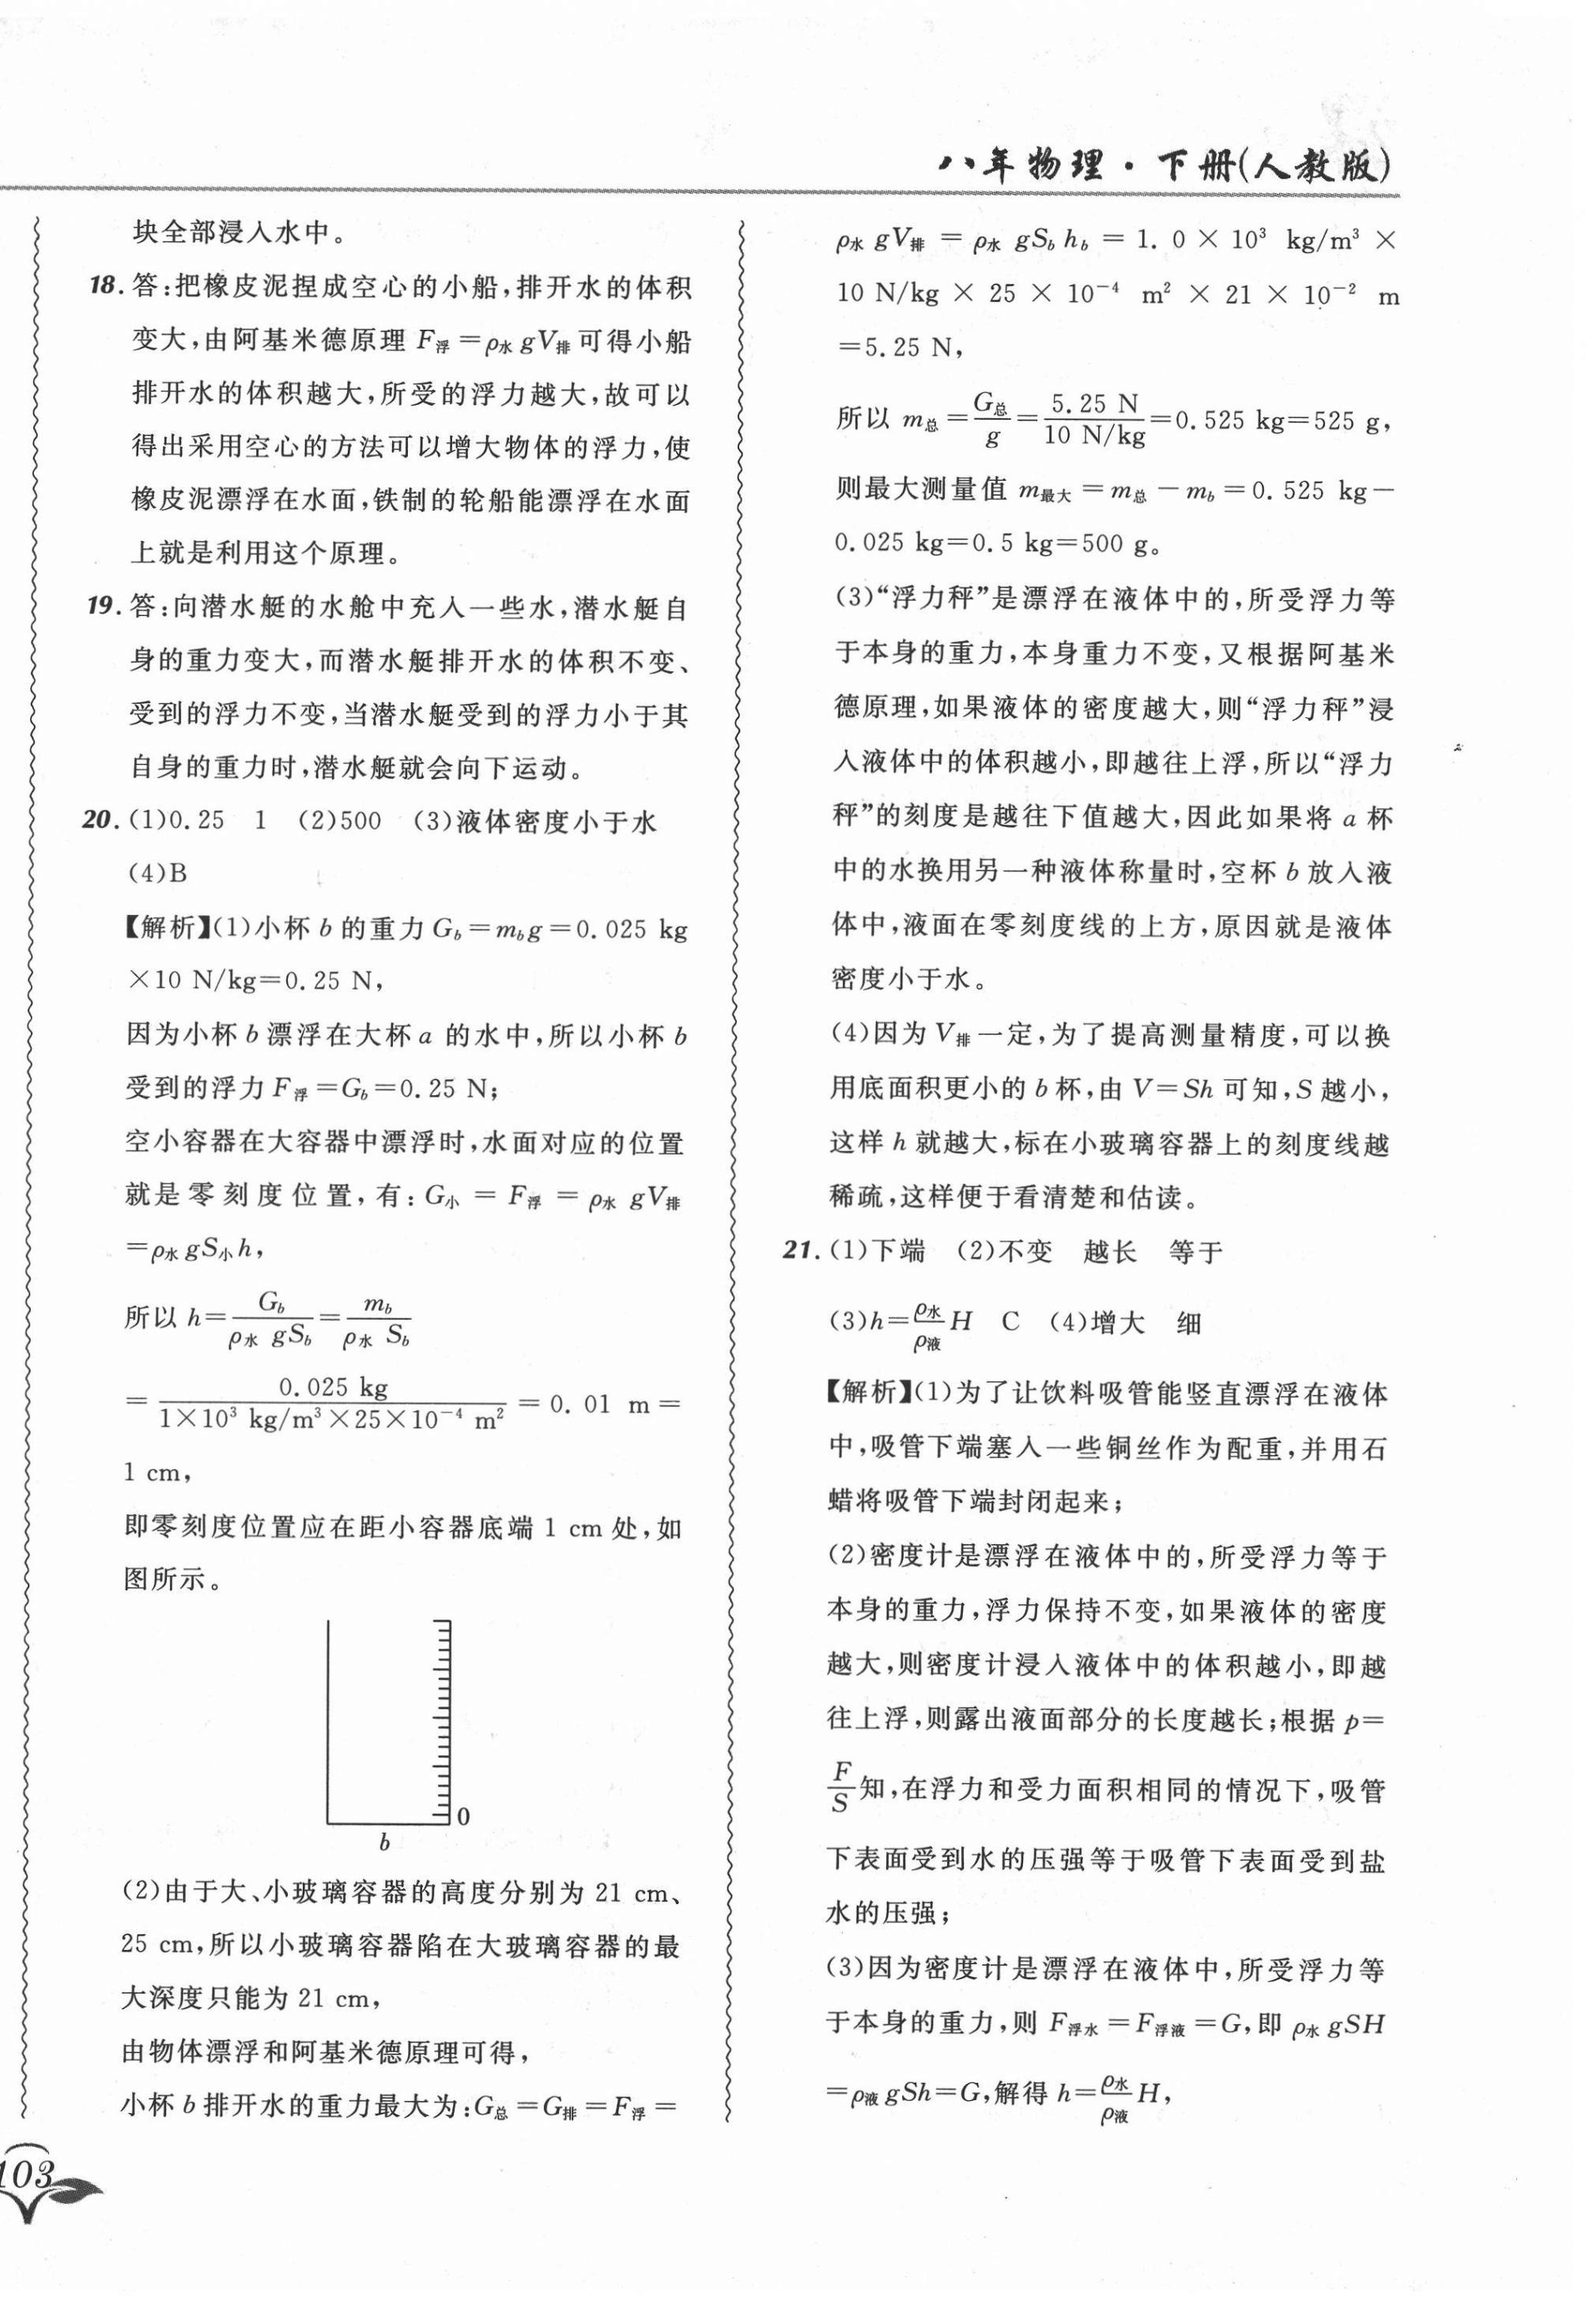 八年物理·下册(人教版)
块全部浸入水中。
18.答:把橡皮泥捏成空心的小船,排开水的体积
变大,由阿基米德原理 F浮=ρ水gV排可得小船
排开水的体积越大,所受的浮力越大,故可以
得出采用空心的方法可以增大物体的浮力,使
橡皮泥漂浮在水面,铁制的轮船能漂浮在水面
上就是利用这个原理。
19.答:向潜水艇的水舱中充入一些水,潜水艇自
身的重力变大,而潜水艇排开水的体积不变、
受到的浮力不变,当潜水艇受到的浮力小于其
自身的重力时,潜水艇就会向下运动。
20.(1)0.25 1 (2)500 (3)液体密度小于水
(4)B
【解析】(1)小杯 b 的重力 G_b=m_bg=0.025 kg
×10 N/kg=0.25 N,
因为小杯 b 漂浮在大杯 a 的水中,所以小杯 b
受到的浮力 F浮=G_b=0.25 N;
空小容器在大容器中漂浮时,水面对应的位置
就是零刻度位置,有:G小=F浮=ρ水gV排
=ρ水gS小h,
所以 h=G_b/(ρ水gS_b)=m_b/(ρ水S_b)
=0.025 kg/(1×10³ kg/m³×25×10⁻⁴ m²)=0.01 m=
1 cm,
即零刻度位置应在距小容器底端 1 cm 处,如
图所示。
0
b
(2)由于大、小玻璃容器的高度分别为 21 cm、
25 cm,所以小玻璃容器陷在大玻璃容器的最
大深度只能为 21 cm,
由物体漂浮和阿基米德原理可得,
小杯 b 排开水的重力最大为:G总=G排=F浮=
103
ρ水gV排=ρ水gS_bh_b=1.0×10³ kg/m³×
10 N/kg×25×10⁻⁴ m²×21×10⁻² m
=5.25 N,
所以 m总=G总/g=5.25 N/(10 N/kg)=0.525 kg=525 g,
则最大测量值 m最大=m总-m_b=0.525 kg-
0.025 kg=0.5 kg=500 g。
(3)“浮力秤”是漂浮在液体中的,所受浮力等
于本身的重力,本身重力不变,又根据阿基米
德原理,如果液体的密度越大,则“浮力秤”浸
入液体中的体积越小,即越往上浮,所以“浮力
秤”的刻度是越往下值越大,因此如果将 a 杯
中的水换用另一种液体称量时,空杯 b 放入液
体中,液面在零刻度线的上方,原因就是液体
密度小于水。
(4)因为 V排一定,为了提高测量精度,可以换
用底面积更小的 b 杯,由 V=Sh 可知,S 越小,
这样 h 就越大,标在小玻璃容器上的刻度线越
稀疏,这样便于看清楚和估读。
21.(1)下端 (2)不变 越长 等于
(3)h=ρ水/ρ液 H C (4)增大 细
【解析】(1)为了让饮料吸管能竖直漂浮在液体
中,吸管下端塞入一些铜丝作为配重,并用石
蜡将吸管下端封闭起来;
(2)密度计是漂浮在液体中的,所受浮力等于
本身的重力,浮力保持不变,如果液体的密度
越大,则密度计浸入液体中的体积越小,即越
往上浮,则露出液面部分的长度越长;根据 p=
F/S知,在浮力和受力面积相同的情况下,吸管
下表面受到水的压强等于吸管下表面受到盐
水的压强;
(3)因为密度计是漂浮在液体中,所受浮力等
于本身的重力,则 F浮水=F浮液=G,即 ρ水gSH
=ρ液gSh=G,解得 h=ρ水/ρ液 H,